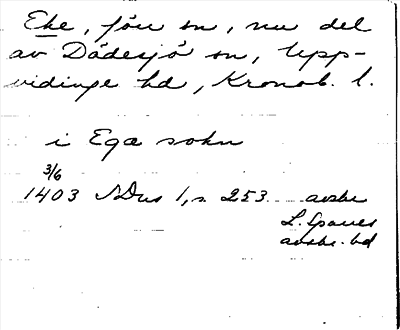 Eke, förr sn, nu del
av Dädesjö sn, Upp-
vidinge hd, Kronob. l.
i Egæ sokn
3/6
1403 SDns 1, s. 253 avskr
L. Sparres
avskr. bd